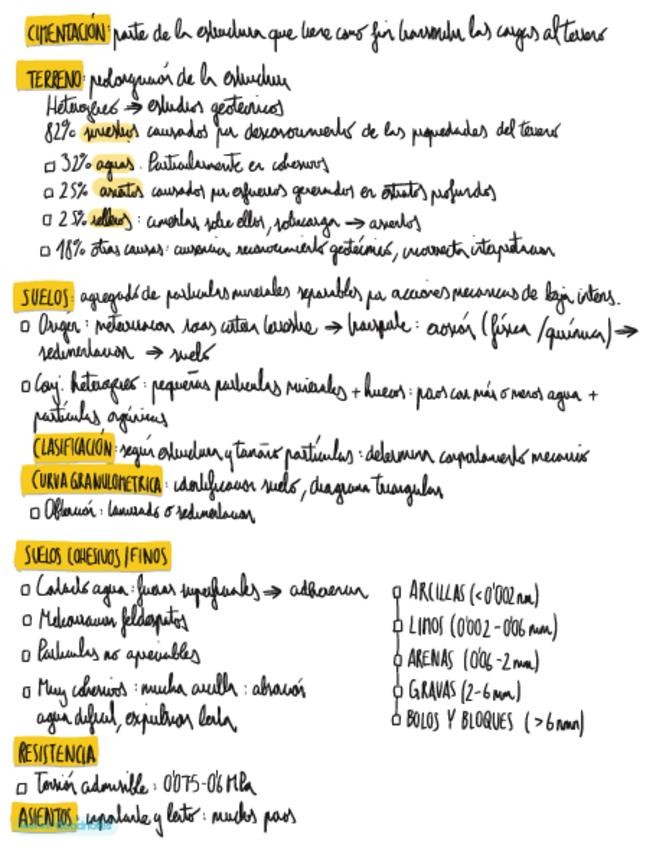 CIMENTACIÓN: parte de la estructura que tiene como fin transmitir las cargas al terreno
TERRENO: prolongación de la estructura
Heterogéneo → estudios geotécnicos
82% siniestros causados por desconocimiento de las propiedades del terreno
□ 32% aguas. Particularmente en cohesivos
□ 25% asientos causados por esfuerzos generados en estratos profundos
□ 25% rellenos: cimentar sobre ellos, sobrecarga → asientos
□ 18% otras causas: ausencia reconocimiento geotécnico, incorrecta interpretación
SUELOS: agregado de partículas minerales separables por acciones mecánicas de baja intens.
□ Origen: meteorización rocas corteza terrestre → transporte: erosión (física/química) →
sedimentación → suelo
□ Conj. heterogéneo: pequeñas partículas minerales + huecos: poros con más o menos agua +
partículas orgánicas
CLASIFICACIÓN: según estructura y tamaño partículas: determinan comportamiento mecánico
CURVA GRANULOMETRICA: identificación suelo, diagrama triangular
□ Obtención: tamizado o sedimentación
SUELOS COHESIVOS/FINOS
□ Contacto agua: fuerzas superficiales → adherencia
□ Meteorización feldespatos
□ Partículas no apreciables
□ Muy cohesivos: mucha arcilla: absorción
agua difícil, expulsión lenta
□ ARCILLAS (<0'002mm)
□ LIMOS (0'002-0'06 mm)
□ ARENAS (0'06-2mm)
□ GRAVAS (2-6mm)
□ BOLOS Y BLOQUES (>6mm)
RESISTENCIA
□ Tensión admisible: 0'075-0'6 MPa
ASIENTOS: importante y lento: muchos poros